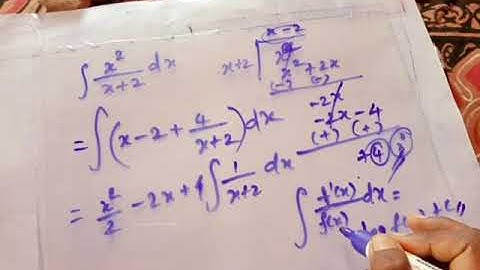 ∫ x²/(x+2) dx
x-2
x+2 ) x²
x² + 2x
(-) (-)
-2x
-2x - 4
(+) (+)
4
= ∫ (x - 2 + 4/(x+2)) dx
= x²/2 - 2x + 4 ∫ 1/(x+2) dx
∫ f'(x)/f(x) dx =
log f(x)